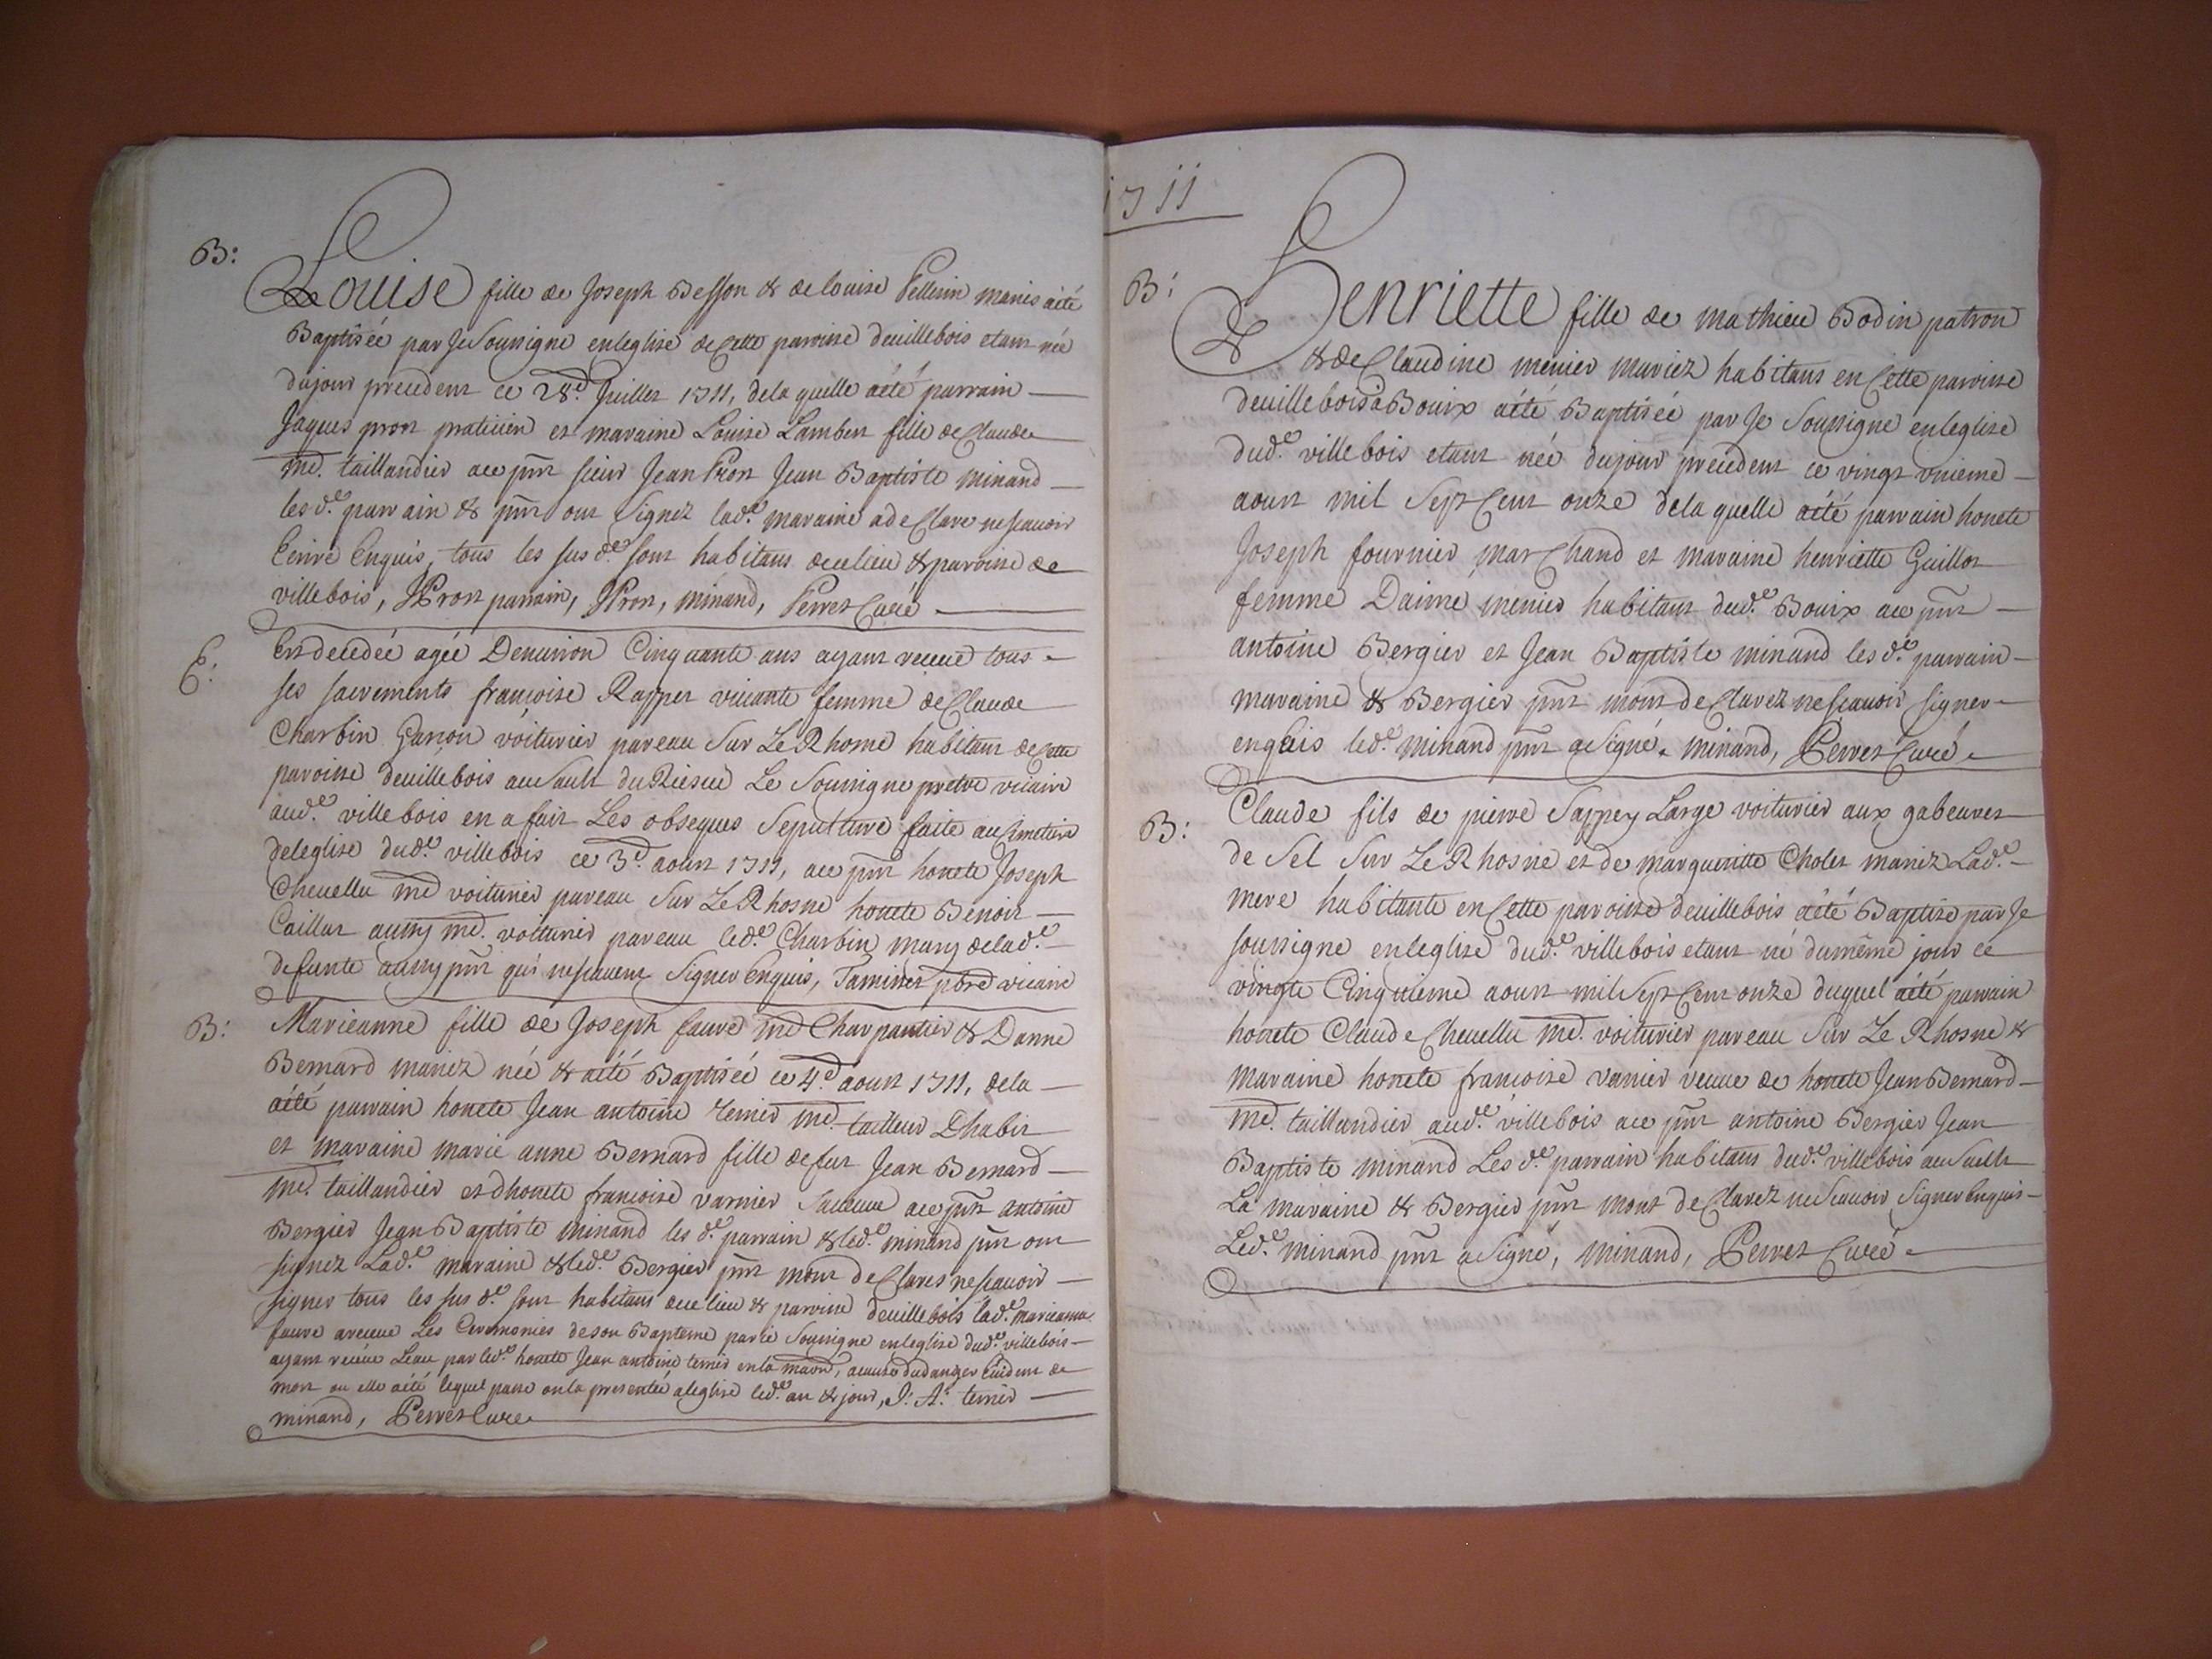 B:
Louise fille de Joseph Besson & de louise Pellerin mariés aété
Baptiséé par Je Soussigne enleglise de Cette paroisse deuillebois etant néé
dujour precedent ce 28.e Juillet 1711, dela quelle aété parrain
Jaques pron praticien et maraine Louise Lambert fille de Claude
me. taillandier ace pnt sieur Jean Pron Jean Baptiste minand
lesd.s parrain & pnt ont signez lad.e maraine a de Claré nescauoir
Ecrire Enquis, tous les susd.s sont habitans decelieu & paroisse de
villebois, JPron parrain, JPron, minand, Perret Curé
E:
Est decedéé agéé Denuiron Cinquante ans ayant receue tous
ses sacrements francoise Rapper viuante femme de Claude
Charbin Garion voiturier pareau Sur Le Rhosne habitant de Cette
paroisse deuillebois au Sault du Le Soussigne pretre vicaire
aud.e villebois en a fait Les obseques Sepulture faite au Cimetiere
deleglise dud.e villebois ce 3.e aoust 1711, ace pnt honete Joseph
Cheuellu me voiturier pareau Sur Le Rhosne honete Benoit
Caillat aussy me. voiturier pareau led.e Charbin mary delad.e
defunte aussy pnt qui nescauent Signer Enquis, Taminet pbre vicaire
B:
Marieanne fille de Joseph faure me Charpantier & Danne
Bernard mariez néé & aété Baptiséé ce 4.e aoust 1711, dela
aété parrain honete Jean antoine Ternier me. tailleur Dhabit
et maraine marie anne Bernard fille defut Jean Bernard
me. taillandier et dhonete francoise varnier ace pnt antoine
Bergier Jean Baptiste minand les d.s parrain & led.e minand pnt ont
signez Lad.e maraine & led.e Bergier pnt mont de Clarés nescauoir
signer tous les sus d.s sont habitans dece lieu & paroisse deuillebois lad.e marieanne
faure areceue Les Ceremonies deson Bapteme par ie Soussigne enleglise dud.e villebois
ayant receue Leau par led.e honete Jean antoine ternier enla maison, acause dudanger Euident de
mort ou elle aété lequel passe onla presentéé aleglise led.e an & jour, J: A: ternier
minand, Perret Curé
1711
B:
Henriette fille de mathieu Bodin patron
& de Claudine menier mariez habitans en Cette paroisse
deuillebois à Bouix aété Baptiséé par Je Soussigne enleglise
dud.e villebois etant néé dujour precedent ce vingt vnieme
aoust mil Sept Cent onze dela quelle aété parrain honete
Joseph fournier marChand et maraine henriette Guillot
femme Daimé menier habitant dud.e Bouix ace pnt
antoine Bergier et Jean Baptiste minand les d.s parrain
maraine & Bergier pnt mont de Clarez nescauoir signer
enquis led.e minand pnt a Signé. minand, Perret Curé
B:
Claude fils de pierre Sappey Large voiturier aux gabeures
de Sel Sur Le Rhosne et de margueritte Cholet mariez Lad.e
mere habitante en Cette paroisse deuillebois aété Baptize par Je
soussigne enleglise dud.e villebois etant né dumême jour ce
vingte Cinquieme aoust mil Sept Cent onze duquel aété parrain
honete Claude Cheuellu me. voiturier pareau Sur Le Rhosne &
maraine honete francoise varnier veuue de honete Jean Bernard
me. taillandier aud.e villebois ace pnt antoine Bergier Jean
Baptiste minand Les d.s parrain habitans dud.e villebois au Sault
La maraine & Bergier pnt mont de Clarez ne Scauoir Signer Enquis
Led.e minand pnt a Signé, minand, Perret Curé